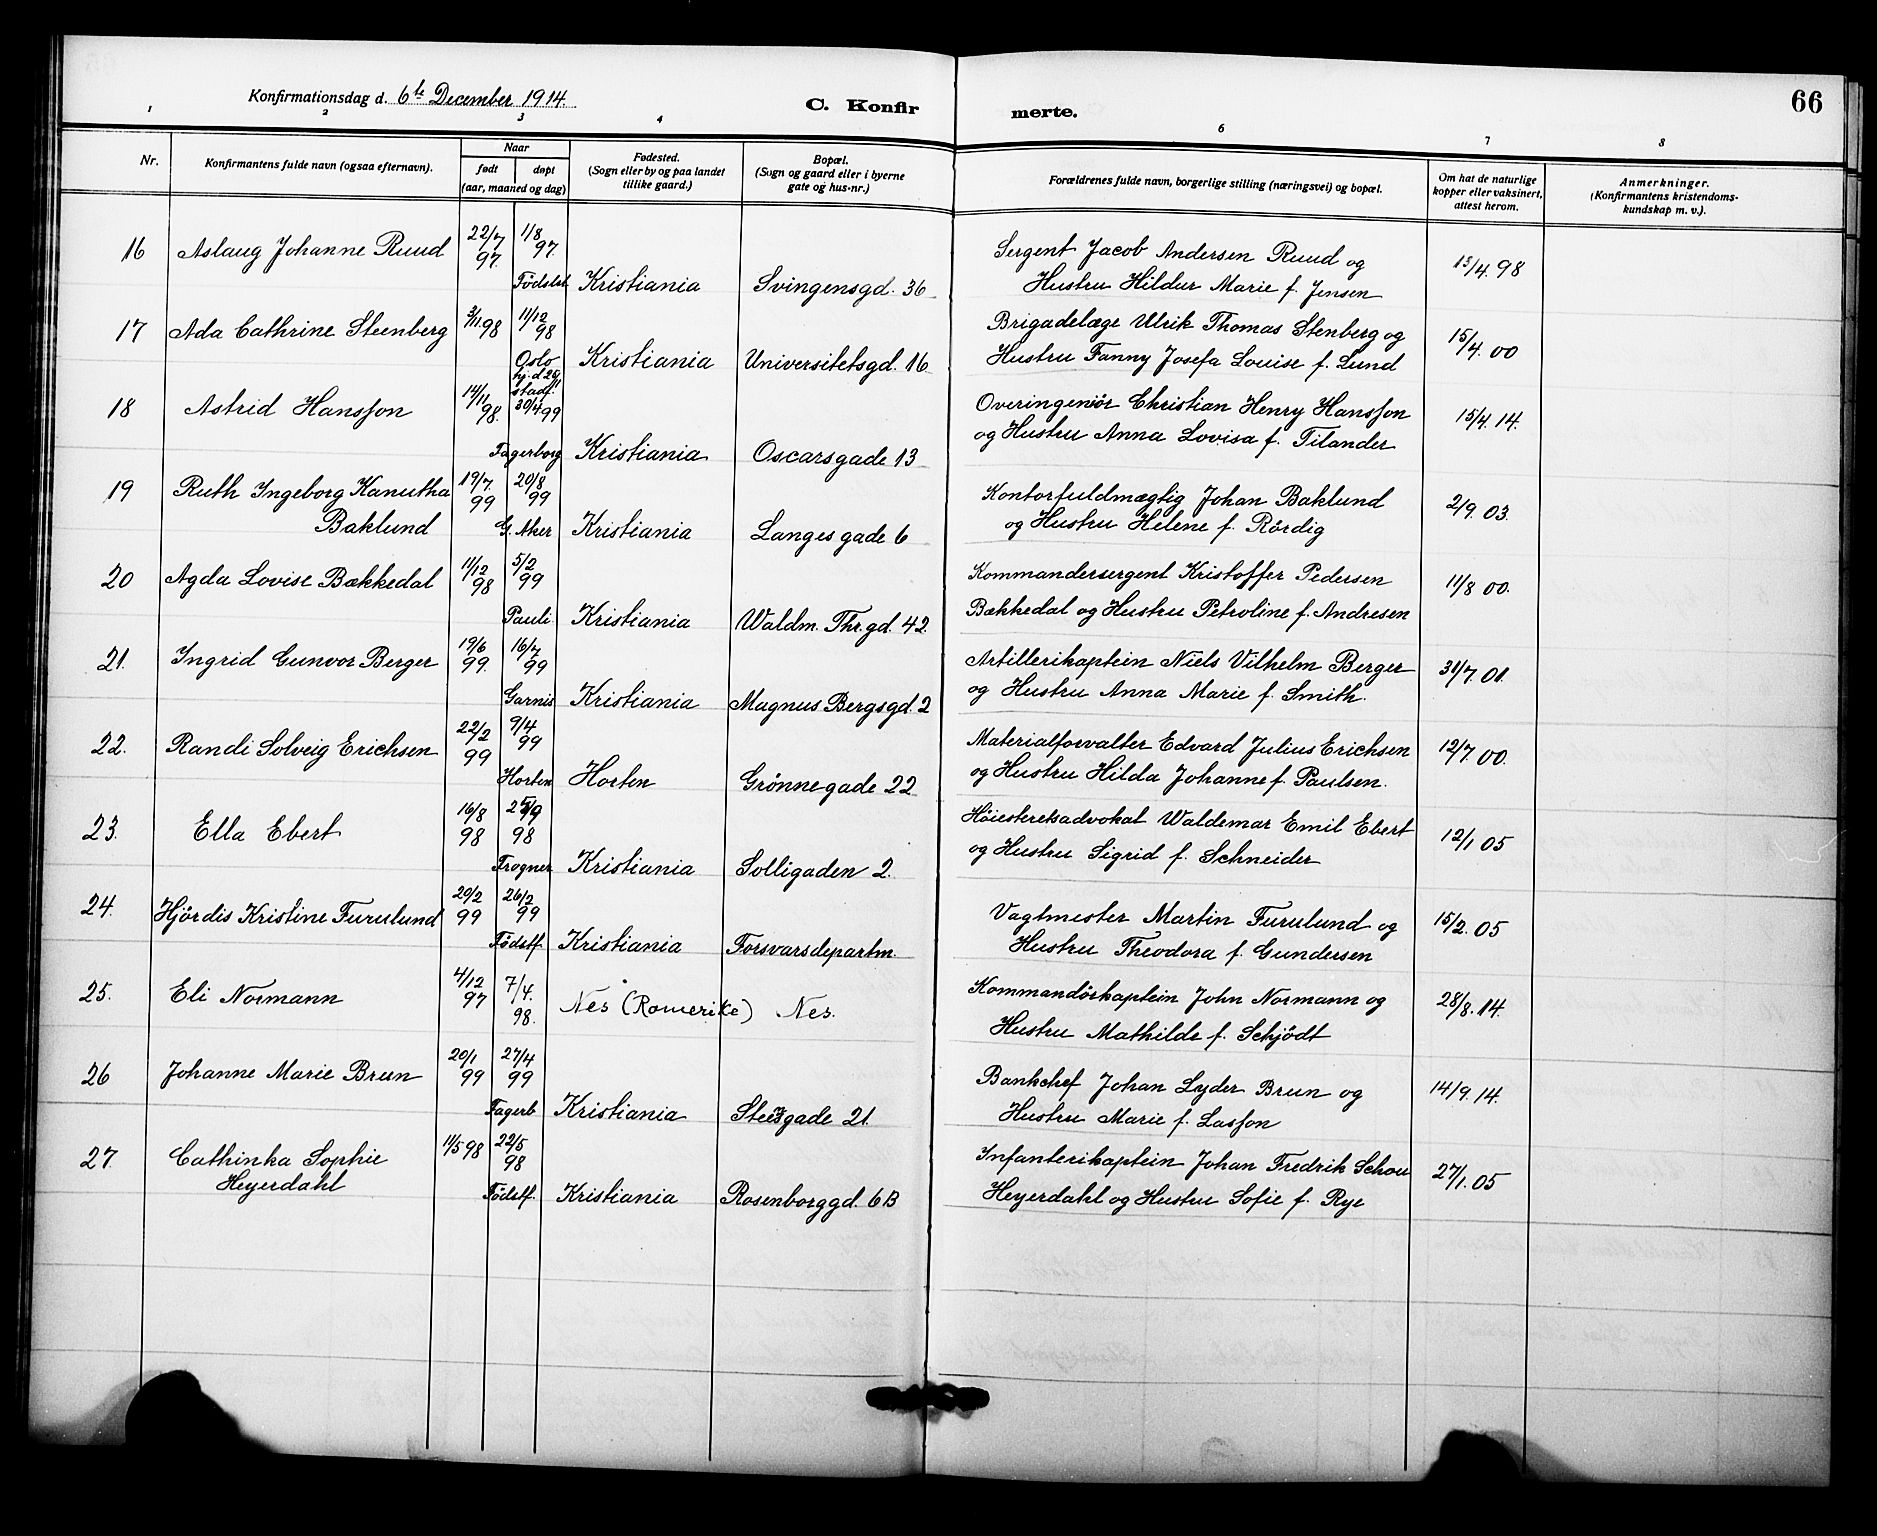 66
Konfirmationsdag d. 6te December 1914.
C. Konfir
merte.
1 2 3 4 6 7 8
Nr.
Konfirmantens fulde navn (ogsaa efternavn).
Naar
født
døpt
(aar, maaned og dag)
Fødested.
(Sogn eller by og paa landet
tillike gaard.)
Bopæl.
(Sogn og gaard eller i byerne
gate og hus-nr.)
Forældrenes fulde navn, borgerlige stilling (næringsvei) og bopæl.
Om hat de naturlige
kopper eller vaksinert,
attest herom.
Anmerkninger.
(Konfirmantens kristendoms-
kundskap m. v.).
16 Aslaug Johanne Ruud 22/7 97. 1/8 97.
Födslst. Kristiania Svingensgd. 36
Sergent Jacob Andersen Ruud og
Hustru Hildur Marie f. Jensen
13/4.98
17 Ada Cathrine Steenberg 3/11.98 11/12 98
Oslo Kristiania Universitetsgd. 16
Brigadelæge Ulrik Thomas Stenberg og
Hustru Fanny Josefa Louise f. Lund
15/4.00
hj.d.25/
stadf.
18 Astrid Hansson 14/11 98. 30/4 99
Fagerborg Kristiania Oscarsgade 13
Overingeniör Christian Henry Hansson
og Hustru Anna Lovisa f. Tilander
15/4.14.
19 Ruth Ingeborg Kanutha 19/7 99 20/8 99
Baklund G. Aker Kristiania Langes gade 6
Kontorfuldmægtig Johan Baklund
og Hustru Helene f. Rördig
2/9.03.
20 Agda Lovise Bækkedal 11/12 98 5/2 99
Pauli Kristiania Waldm. Thr.gd. 42.
Kommandersergent Kristoffer Pedersen
Bækkedal og Hustru Petroline f. Andresen
11/8 00.
21. Ingrid Gunvor Berger 19/6 99. 16/7 99
Garnis Kristiania Magnus Bergsgd. 2
Artillerikaptein Niels Vilhelm Berger
og Hustru Anna Marie f. Smith.
31/7.01.
22. Randi Solveig Erichsen 22/2 99 9/4 99
Horten Horten Grönnegade 22
Materialforvalter Edvard Julius Erichsen
og Hustru Hilda Johanne f. Paulsen.
12/7.00.
23. Ella Ebert 16/8 98 25/9 98
Frogner Kristiania Solligaden 2.
Höiesteretsadvokat Waldemar Emil Ebert
og Hustru Sigrid f. Schneider
12/1 05
24. Hjördis Kristine Furulund 20/2 99 26/2 99
Födstf. Kristiania Forsvarsdepartm.
Vagtmester Martin Furulund og
Hustru Theodora f. Gundersen
15/2.05
25. Eli Normann 4/12 97 7/4. 98.
Nes (Romerike) Nes.
Kommandörkaptein John Normann og
Hustru Mathilde f. Schjödt
28/8.14.
26 Johanne Marie Brun 20/1 99 27/4 99
Fagerb Kristiania Steensgade 21.
Bankchef Johan Lyder Brun og
Hustru Marie f. Lasson
14/9.14.
27. Cathinka Sophie 11/5 98 22/5 98
Heyerdahl Födstf. Kristiania Rosenborggd. 6B
Infanterikaptein Johan Fredrik Schou
Heyerdahl og Hustru Sofie f. Rye
27/1.05